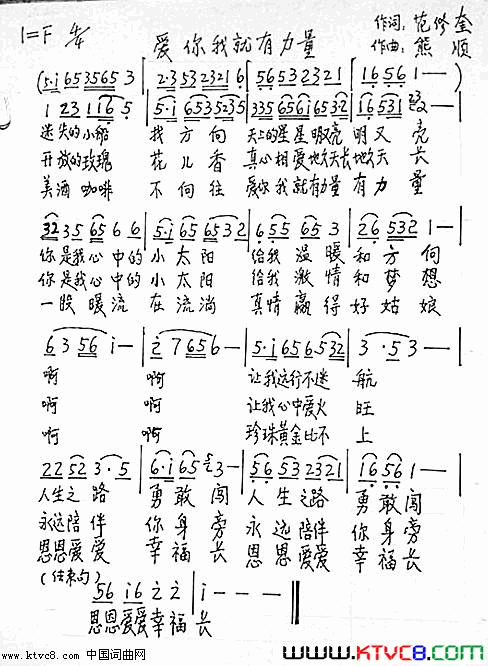 1=F 4/4
爱你我就有力量
作词：范修奎
作曲：熊顺
(5·i 65 3565 3 | 2·3 5323 21 6 | 56 53 2323 21 | 16 56 1 — )
1 23 116 5 | 5·i 653 523 5 | 335 656i 6532 | 16 531 2 — |
迷失的小船 找方向 天上的星星明又亮 明又亮
开放的玫瑰 花儿香 真心相爱地久天长地久天长
美酒咖啡 不向往 爱你我就有力量有力量
32 35 65 6 6 | 5·i 65 6532 | 6 55 65 3 | 26 532 1 — |
你是我心中的小太阳 给我温暖和方向
你是我心中的小太阳 给我激情和梦想
一股暖流在流淌 真情赢得好姑娘
6 3 56 i — | 2 7 65 6 — | 5·i 656 532 | 3 · 5 3 — |
啊 啊 让我远行不迷航
啊 啊 让我心中爱火旺
啊 啊 珍珠黄金比不上
22 52 3·5 | 6·i 65 3 — | 56 53 2321 | 16 56 1 — |
人生之路 勇敢闯 人生之路 勇敢闯
永远陪伴 你身旁 永远陪伴 你身旁
恩恩爱爱 幸福长 恩恩爱爱 幸福长
(结束句)
56 i6 2 2 | i — — — ‖
恩恩爱爱幸福长
www.ktvc8.com 中国词曲网
WWW.KTVC8.COM